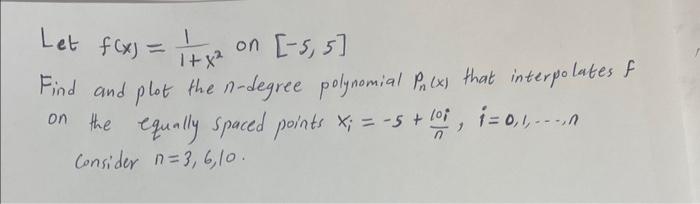 Let f(x) = 1/(1+x²) on [-5, 5]
Find and plot the n-degree polynomial Pₙ(x) that interpolates f
on the equally spaced points xᵢ = -5 + 10i/n, i = 0, 1, ---, n
Consider n = 3, 6, 10.